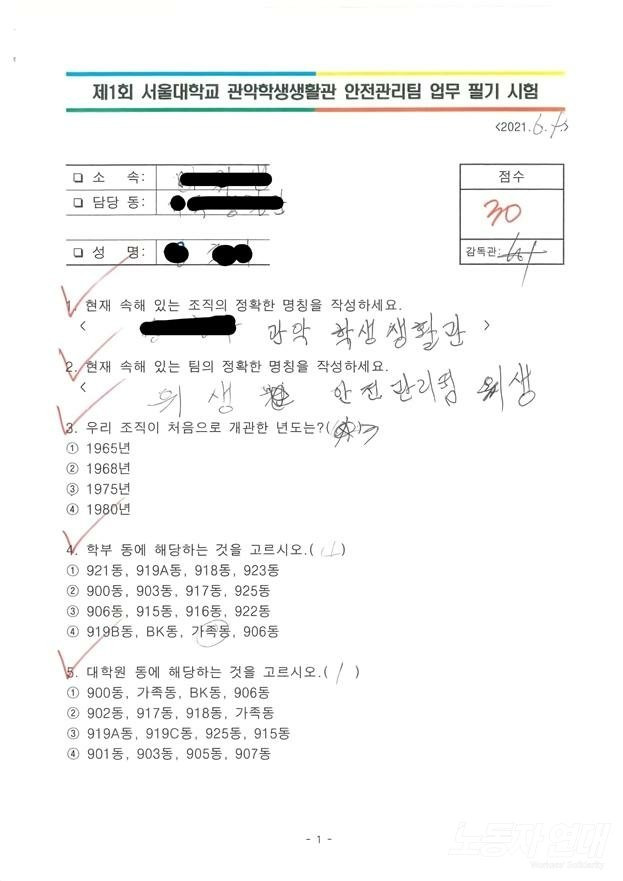 제1회 서울대학교 관악학생생활관 안전관리팀 업무 필기 시험
<2021.6.9.>
❑ 소 속:
❑ 담당 동:
❑ 성 명:
점수
30
감독관:
1. 현재 속해 있는 조직의 정확한 명칭을 작성하세요.
< 관악 학생생활관 >
2. 현재 속해 있는 팀의 정확한 명칭을 작성하세요.
< 위생 안전관리팀 위생
3. 우리 조직이 처음으로 개관한 년도는?( )
① 1965년
② 1968년
③ 1975년
④ 1980년
4. 학부 동에 해당하는 것을 고르시오.( )
① 921동, 919A동, 918동, 923동
② 900동, 903동, 917동, 925동
③ 906동, 915동, 916동, 922동
④ 919B동, BK동, 가족동, 906동
5. 대학원 동에 해당하는 것을 고르시오.( 1 )
① 900동, 가족동, BK동, 906동
② 902동, 917동, 918동, 가족동
③ 919A동, 919C동, 925동, 915동
④ 901동, 903동, 905동, 907동
- 1 -
노동자 연대
Workers' Solidarity